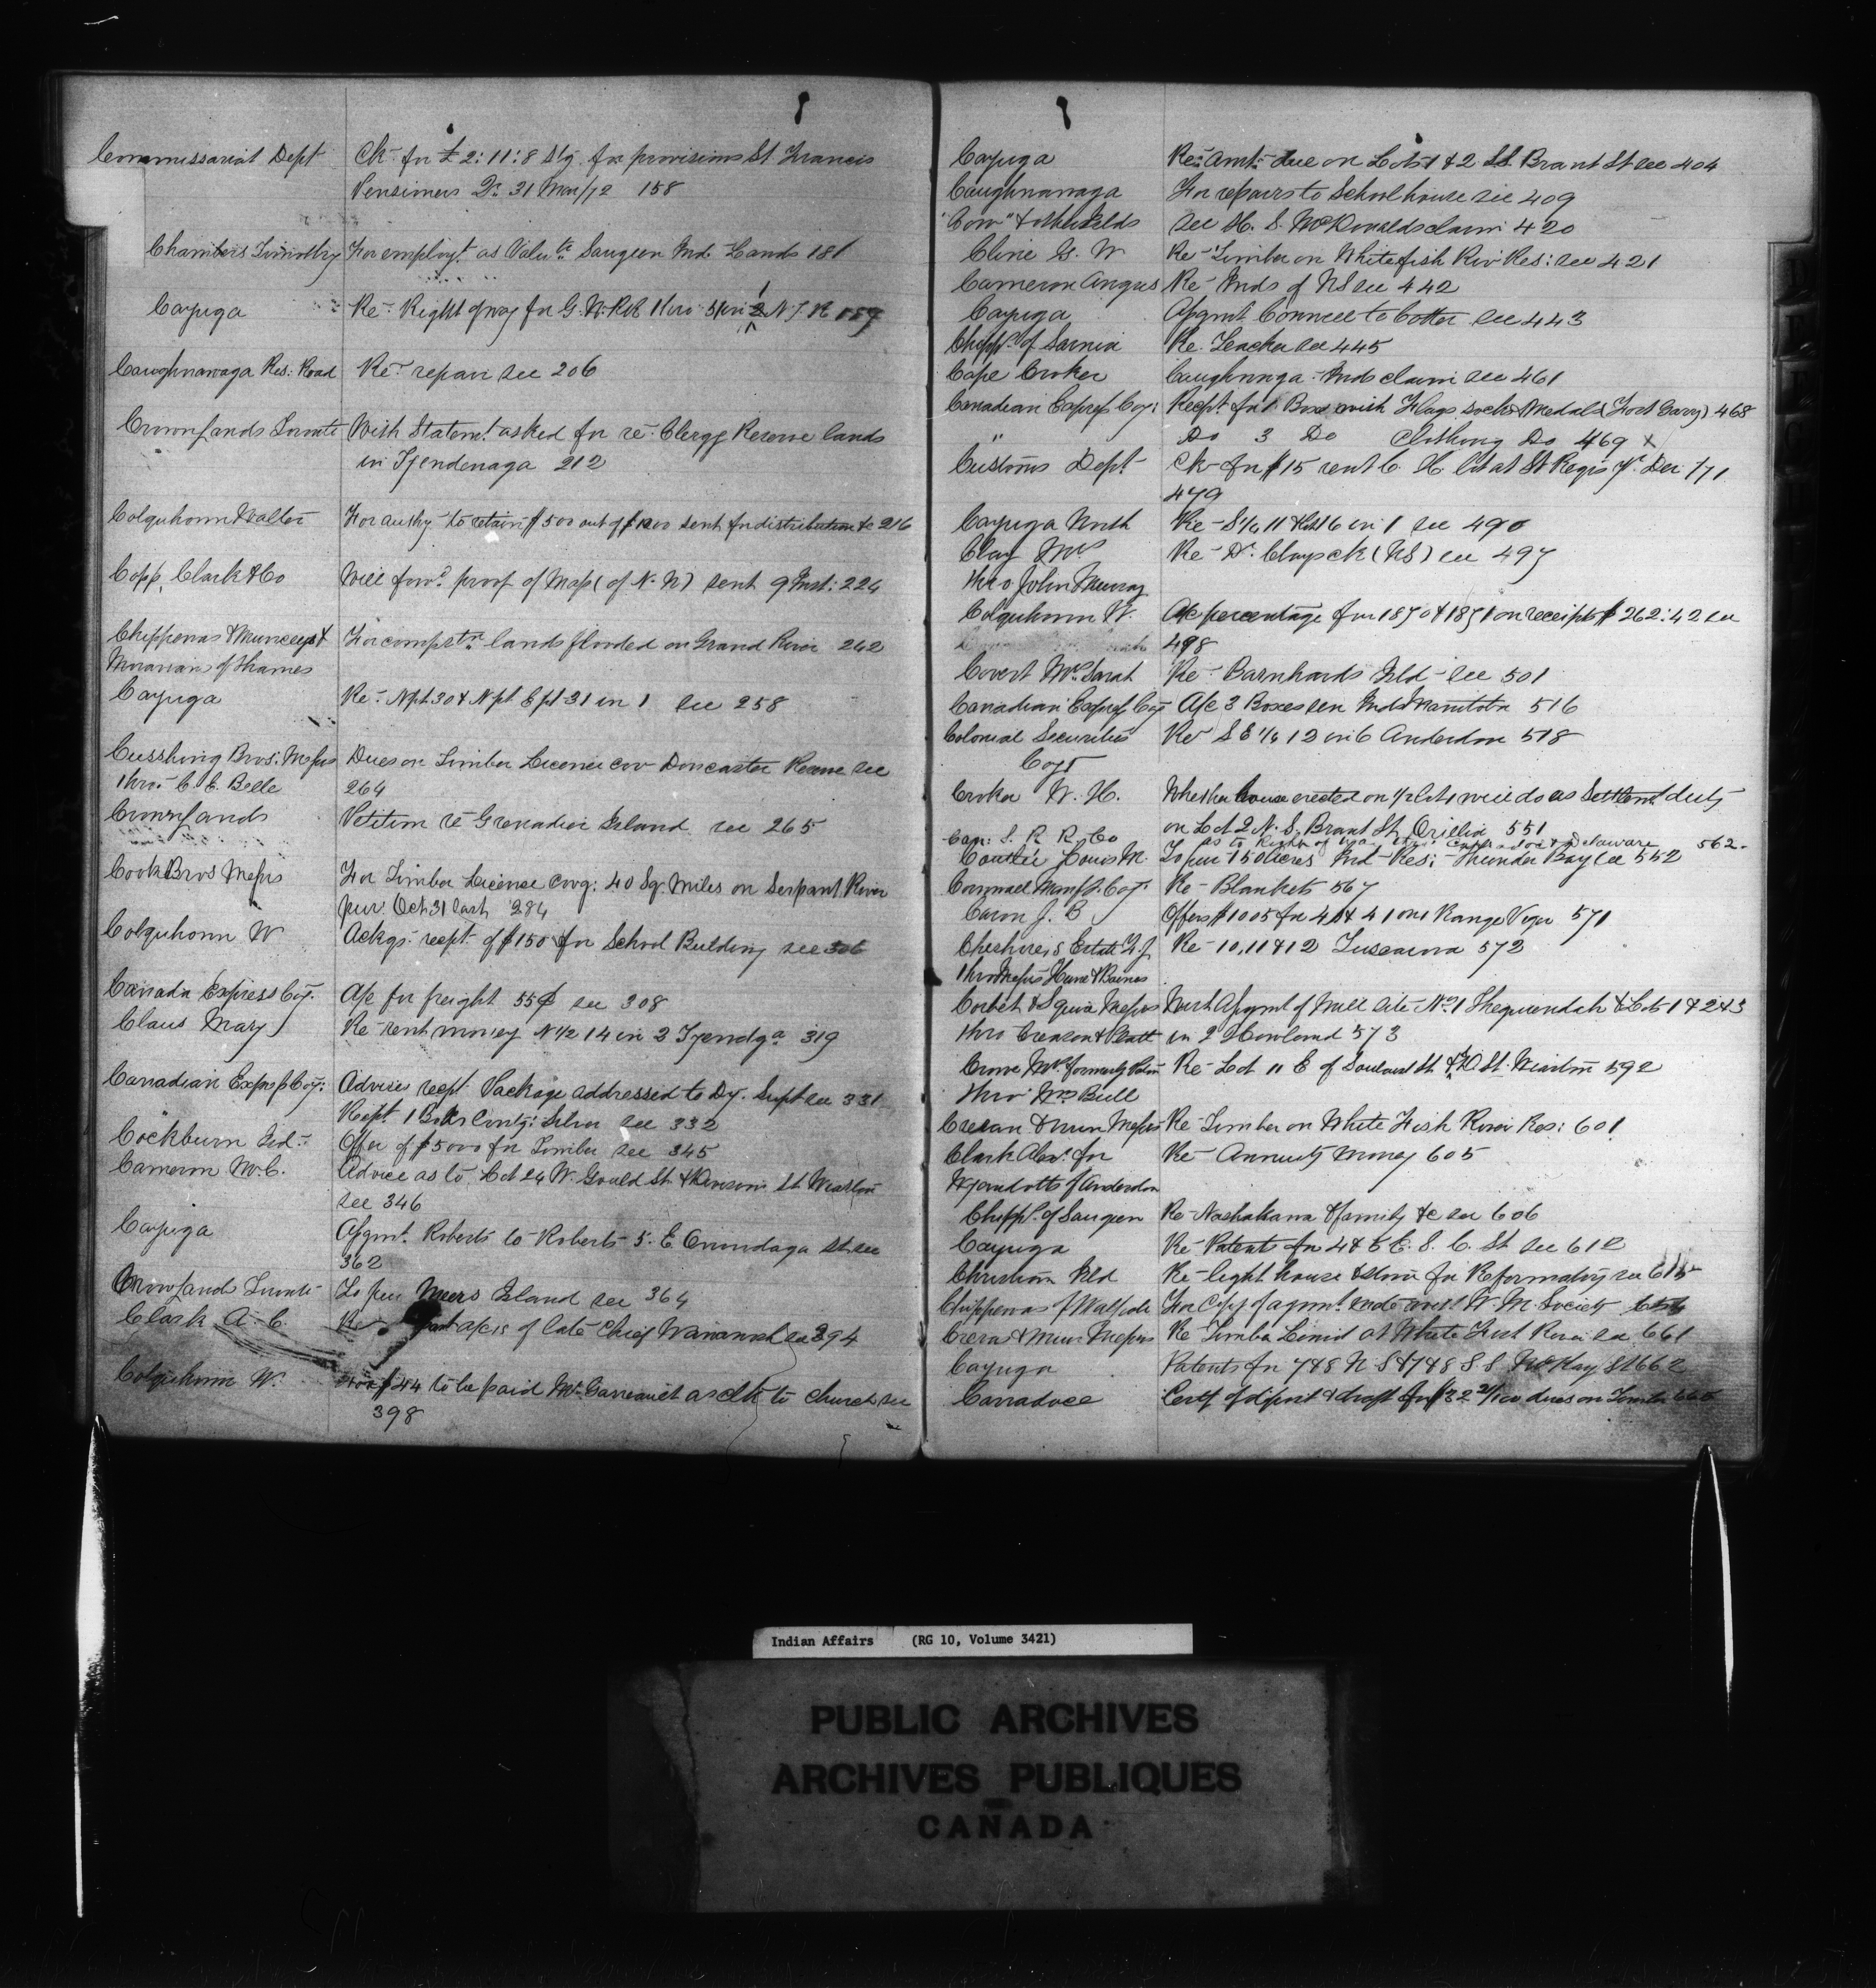 Commissariat Dept Ck for £2:11:8 Stg. for provisions St Francis
Pensioners Qr 31 Mar/72 158
Chambers Timothy For employt. as Valutr Saugeen Ind. Lands 181
Cayuga Re Right of way for G. W. RR thro 5 in 2 N. J. R 189
Caughnawaga Res: Road Re repair see 206
Crown Lands Toronto With Statemt. asked for re Clergy Reserve lands
in Tyendenaga 212
Colquhoun Walter For authy to retain $500 out of $1200 sent for distribution &c 216
Copp, Clark & Co Will forwd. proof of Map (of N. W) sent 9 Inst: 224
Chippewas & Munceys & For compstn. lands flooded on Grand River 242
Moravians of Thames
Cayuga Re Npt 30 & Npt E pt 31 in 1 see 258
Cusshing Bros: Messrs Dues on Timber License cov Doncaster Reserve see
thro C. E. Belle 264
Crown Lands Petition re Grenadier Island see 265
Cook Bros Messrs For Timber License covg: 40 Sq. Miles on Serpant River
pur. Oct 31 last 284
Colquhoun W Ackgs. recpt. of $150 for School Building see 306
Canada Express Coy. A/c for freight 55¢ see 308
Claus Mary Re rent money N 1/2 14 in 2 Tyendga 319
Canadian Express Coy: Advises recpt. Package addressed to Dy. Supt see 331
Recpt. 1 Box Contg: Silver see 332
Cockburn Offer of $5000 for Timber see 345
Cameron W. C. Advice as to Lot 24 W. Gould St. St Wiarton
see 346
Cayuga Asgmt. Roberts to Roberts 5. E Onondaga St. see
362
Crown Lands Toronto To pur Meers Island see 364
Clark A. C. Re a/cs of late Chief Wawanosh see 394
Colquhoun W. $44 to be paid Mr. as clk to Church see
398
Cayuga Re: amt: due on Lots 1 & 2 SS. Brant St see 404
Caughnawaga For repairs to Schoolhouse see 409
"Cow" & other Islds see H. S. McDonalds claim 420
Cline G. W Re Timber on Whitefish Riv Res: see 421
Cameron Angus Re Inds of NS see 442
Cayuga Asgmt. Council to Cotter see 443
Chipps. of Sarnia Re. Teacher see 445
Cape Croker Caughnnga Inds claim see 461
Canadian Express Coy: Recpt for 1 Box with Flags socks & Medals (Fort Garry) 468
" Do 3 Do Clothing Do 469 x
Customs Dept. Ck for $15 rent C. H. lot at St Regis Yr Dec /71
479
Cayuga North Re S 1/2 11 & 16 in 1 see 490
Clay Mrs Re Dr. Clays ck (NS) see 497
thro John Murray
Colquhoun W. A/c percentage for 1870 & 1871 on receipts $262:42 see
498
Covert Mrs. Sarah Re Barnhards Isld see 501
Canadian Express Coy A/c 3 Boxes sen Inds Manitoba 516
Colonial Securities Re S E 1/4 12 in 6 Anderdon 518
Coys
Croker W. H. Whether house erected on 1/2 lots will do as Settlemt duty
on Lot 2 N. S. Brant St. Orillia 551
Can: S. R R. Co as to Right of way thro Delaware 562.
Louis M. To pur 150 acres Ind Res: Thunder Bay see 552
Cornwall Manfg. Coy. Re Blankets 567
Caron J. B Offers $1005 for 40 & 41 one Range 571
Cheshire's Estate Re 10, 11 & 12 Tuscarora 572
thro Messrs
Corbet & Squire Messrs Asgmt of Mill Site No 1 Shequiendah & Lots 1 & 2 & 3
thro Creasor & in 2 Howland 573
Crowe Mrs. formerly Re Lot 11 E of St. Wiarton 592
thro Wm Bull
Crevar & Muir Messrs Re Timber on White Fish River Res: 601
Clark Alexr. for Re Annuity money 605
Wyandotts of Anderdon
Chipps. of Saugeen Re & family &c see 606
Cayuga Re Patents for 4 & 5 E. S. C. St see 612
Christian Isld Re light house & store for Reformatory see 615
Chippewas of Walpole For Copy of agmt. with W. M. Society
Crevar & Muir Messrs Re Timber Limit at White Fish River see 661
Cayuga Patents for 7 & 8 N. S & 7 & 8 S S McKay St 662
Carradoce Certf of deposit & draft for $32 dues on Timber
Indian Affairs (RG 10, Volume 3421)
PUBLIC ARCHIVES
ARCHIVES PUBLIQUES
CANADA